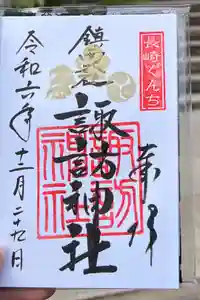 長崎くんち
奉拝
鎮西
諏訪神社
諏訪神社
令和六年十二月二十九日